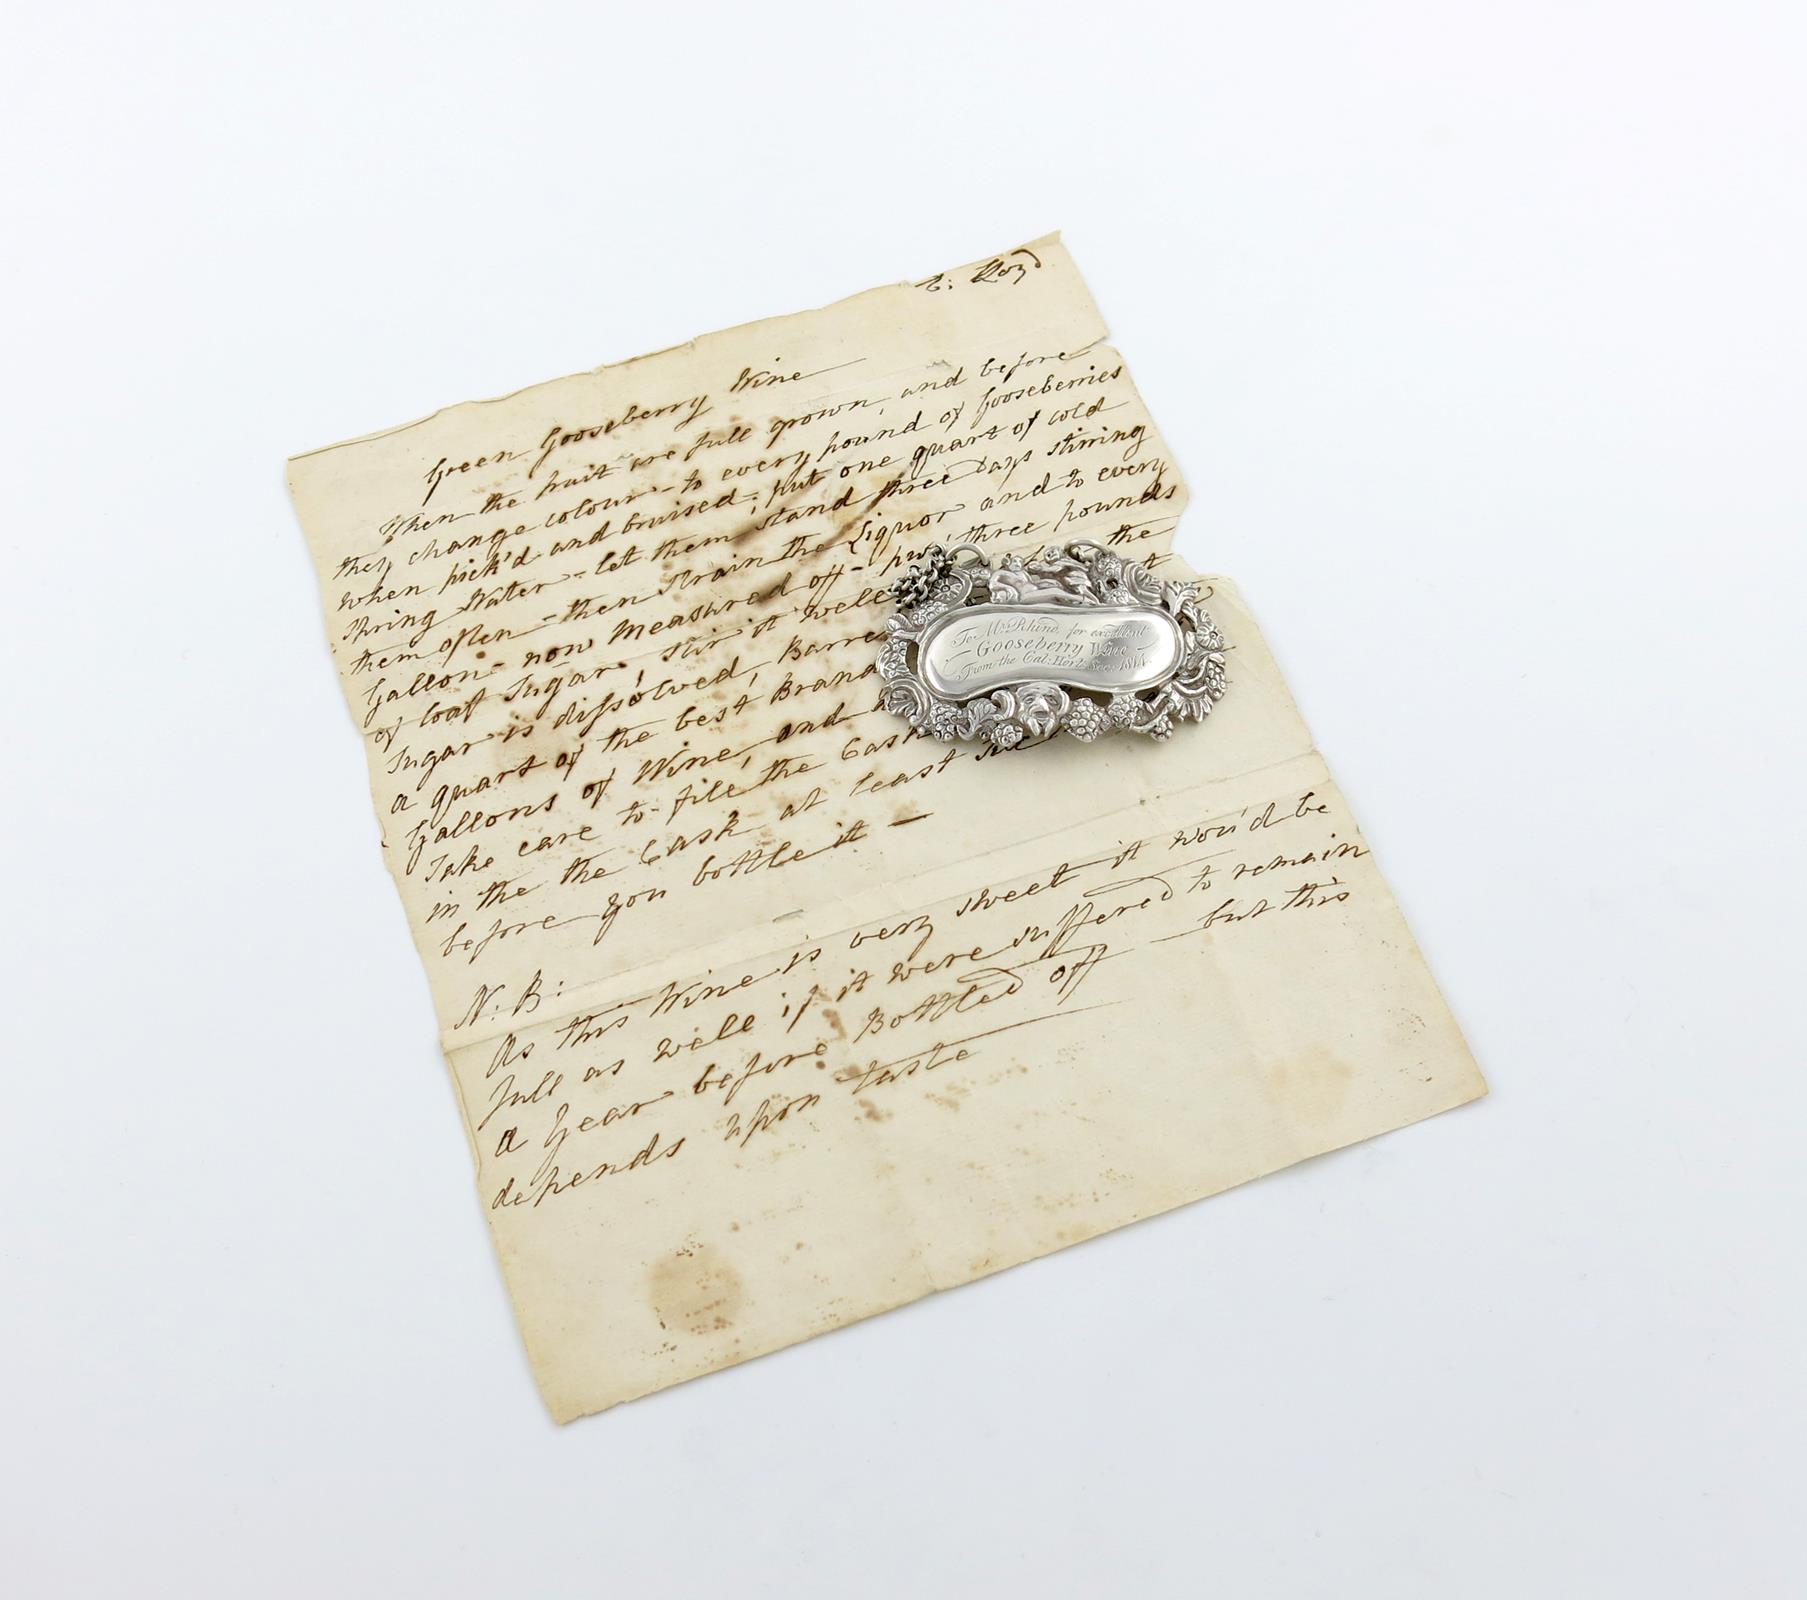 Green Gooseberry Wine
When the fruit are full grown, and before
they change colour - to every pound of Gooseberries
when pick'd and bruised, put one quart of cold
Spring Water - let them stand three Days stirring
them often - then strain the Liquor and to every
Gallon - now measured off - put three pounds
of loaf Sugar, stir it well the
Sugar is dissolved,
a quart of the best
Gallons of Wine, and
Take care to fill the Cask
in the the Cask at least
before you bottle it -
N. B:
As this Wine is very sweet it wou'd be
full as well if it were suffered to remain
a Year before Bottled off - but this
depends upon taste
To Mr. Rhind, for excellent
Gooseberry Wine
From the Cal: Hort: Soc: